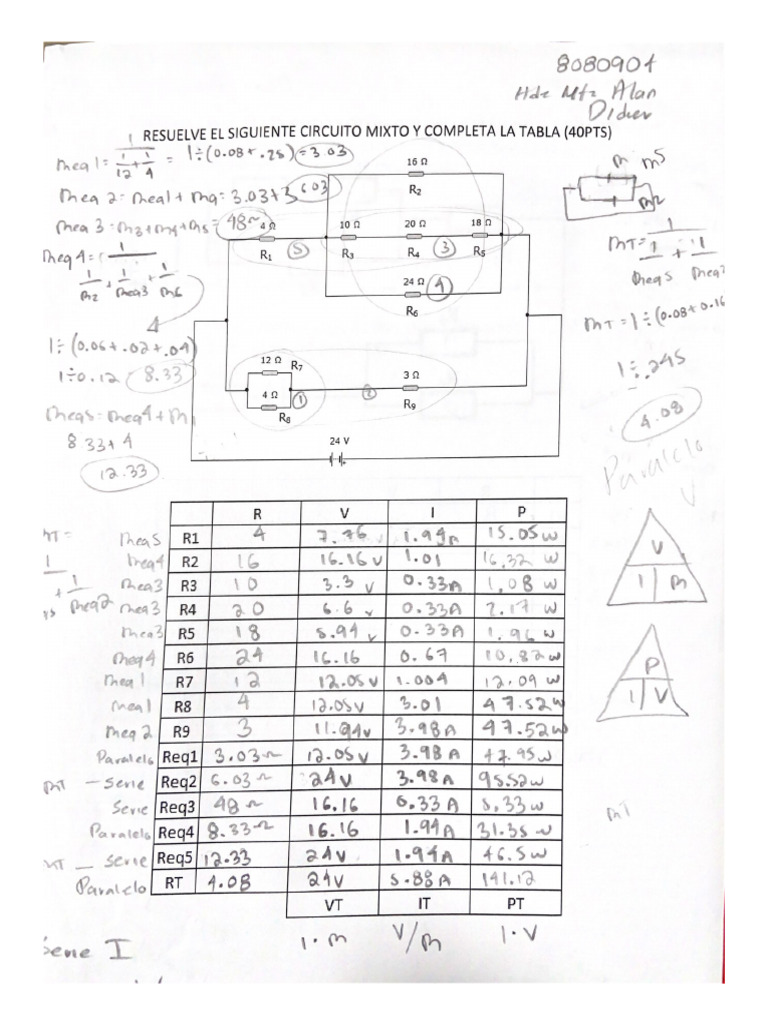 8080904
Hdz Mtz Alan
Didier
RESUELVE EL SIGUIENTE CIRCUITO MIXTO Y COMPLETA LA TABLA (40PTS)
Req1 = 1 / (1/12 + 1/4) = 1÷(0.08 + .25) = 3.03
Req 2 = Req1 + R9 = 3.03+3 6.03
Req 3 = R3+R4+R5 = 48Ω
Req4 = 1 / (1/R2 + 1/Req3 + 1/R6)
1÷(0.06+.02+.04)
1÷0.12 = 8.33
Req5 = Req4 + R1
8.33+4
12.33
16 Ω
R2
4 Ω 10 Ω 20 Ω 18 Ω
R1 5 R3 R4 3 R5
24 Ω 4
R6
12 Ω R7
4 Ω 1
R8
3 Ω
2 R9
24 V
RT = 1 / (1/Req5 + 1/Req2
RT = 1÷(0.08+0.16
1÷.245
4.08
Paralelo
V
I R
P
I V
R V I P
Req5 R1 4 7.76V 1.94A 15.05W
Req4 R2 16 16.16V 1.01 16.32 W
Req3 R3 10 3.3 V 0.33A 1.08 W
Req3 R4 20 6.6 V 0.33A 2.17 W
Req3 R5 18 5.94 V 0.33A 1.96 W
Req4 R6 24 16.16 0.67 10.82W
Req1 R7 12 12.05V 1.004 12.09 W
Req1 R8 4 12.05V 3.01 47.52W
Req 2 R9 3 11.94V 3.98A 47.52W
Paralelo Req1 3.03Ω 12.05V 3.98A 47.95W
RT - Serie Req2 6.03Ω 24V 3.98A 95.52W
Serie Req3 48Ω 16.16 0.33A 5.33W
Paralelo Req4 8.33Ω 16.16 1.94A 31.35 W
RT - Serie Req5 12.33 24V 1.94A 46.5W
Paralelo RT 4.08 24V 5.88A 141.12
VT IT PT
I·R V/R I·V
RT
Serie I